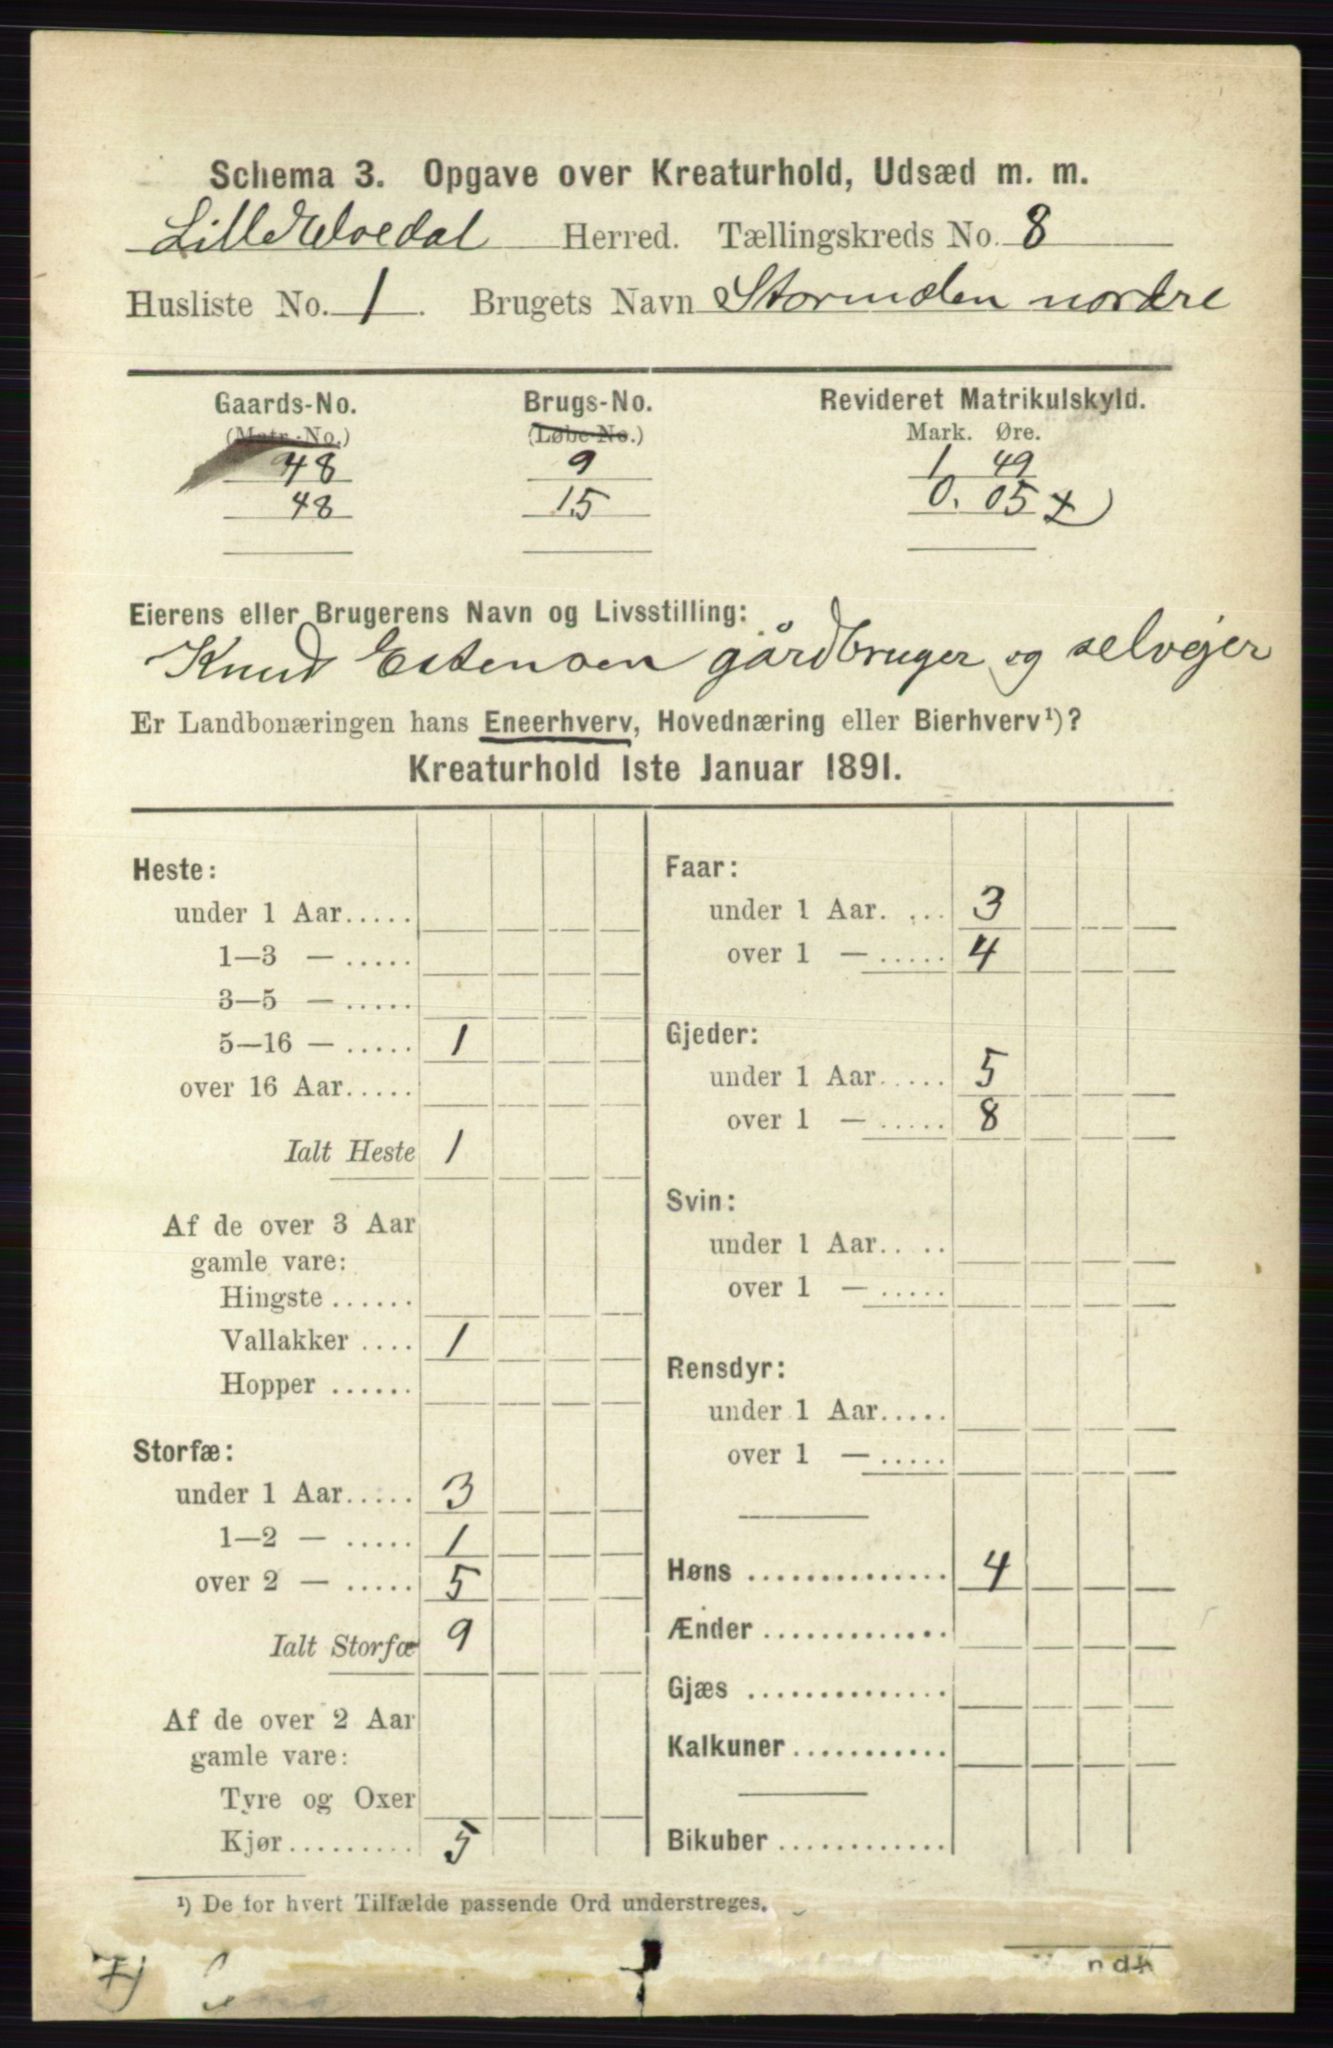 Schema 3. Opgave over Kreaturhold, Udsæd m. m.
Lille Elvedal Herred. Tællingskreds No. 8
Husliste No. 1. Brugets Navn Stormoen nordre
Gaards-No. Brugs-No. Revideret Matrikulskyld.
(Matr.-No.) (Løbe-No.) Mark. Øre.
48 9 1 49
48 15 0. 05 X)
Eierens eller Brugerens Navn og Livsstilling:
Knud Estensen gårdbruger og selvejer
Er Landbonæringen hans Eneerhverv, Hovednæring eller Bierhverv¹)?
Kreaturhold 1ste Januar 1891.
Heste:
under 1 Aar.....
1—3 — .....
3—5 — .....
5—16 — ..... 1
over 16 Aar.....
Ialt Heste 1
Af de over 3 Aar
gamle vare:
Hingste ......
Vallakker .... 1
Hopper ......
Storfæ:
under 1 Aar..... 3
1—2 — ..... 1
over 2 — ..... 5
Ialt Storfæ 9
Af de over 2 Aar
gamle vare:
Tyre og Oxer
Kjør......... 5
Faar:
under 1 Aar. ... 3
over 1 — ..... 4
Gjeder:
under 1 Aar..... 5
over 1 — ..... 8
Svin:
under 1 Aar.. ..
over 1 — .....
Rensdyr:
under 1 Aar.....
over 1 — .....
Høns .............. 4
Ænder .............
Gjæs ..............
Kalkuner...........
Bikuber ............
¹) De for hvert Tilfælde passende Ord understreges.